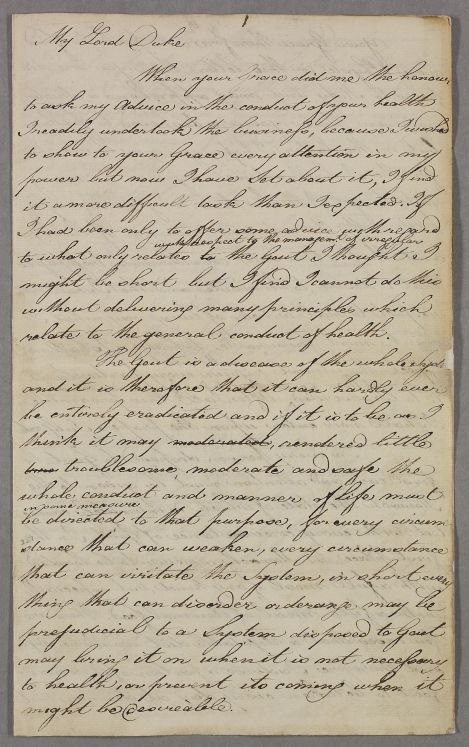 1
My Lord Duke
When your Grace did me the honour
to ask my Advice in the conduct of your health
I readily undertook the business, because I wished
to show to your Grace every attention in my
power but now I have Set about it, I find
it a more difficult task than I expected. If
I had been only to offer some advice with regard
with respect to the managem^t of irregular
to what only relates to the Gout I thought I
might be short but I find I cannot do this
without delivering many principles which
relate to the general conduct of health.
The Gout is a disease of the whole Syst
and it is therefore that it can hardly ever
be entirely eradicated and if it is to be as I
think it may moderated, rendered little
troublesome, moderate and safe the
whole conduct and manner of life must
in some measure
be directed to that purpose, for every circum
stance that can weaken, every circumstance
that can irritate the System, in short every
thing that can disorder or derange may be
prejudicial to a System disposed to Gout
may bring it on when it is not necessary
to health, or prevent its coming when it
might be desireable.